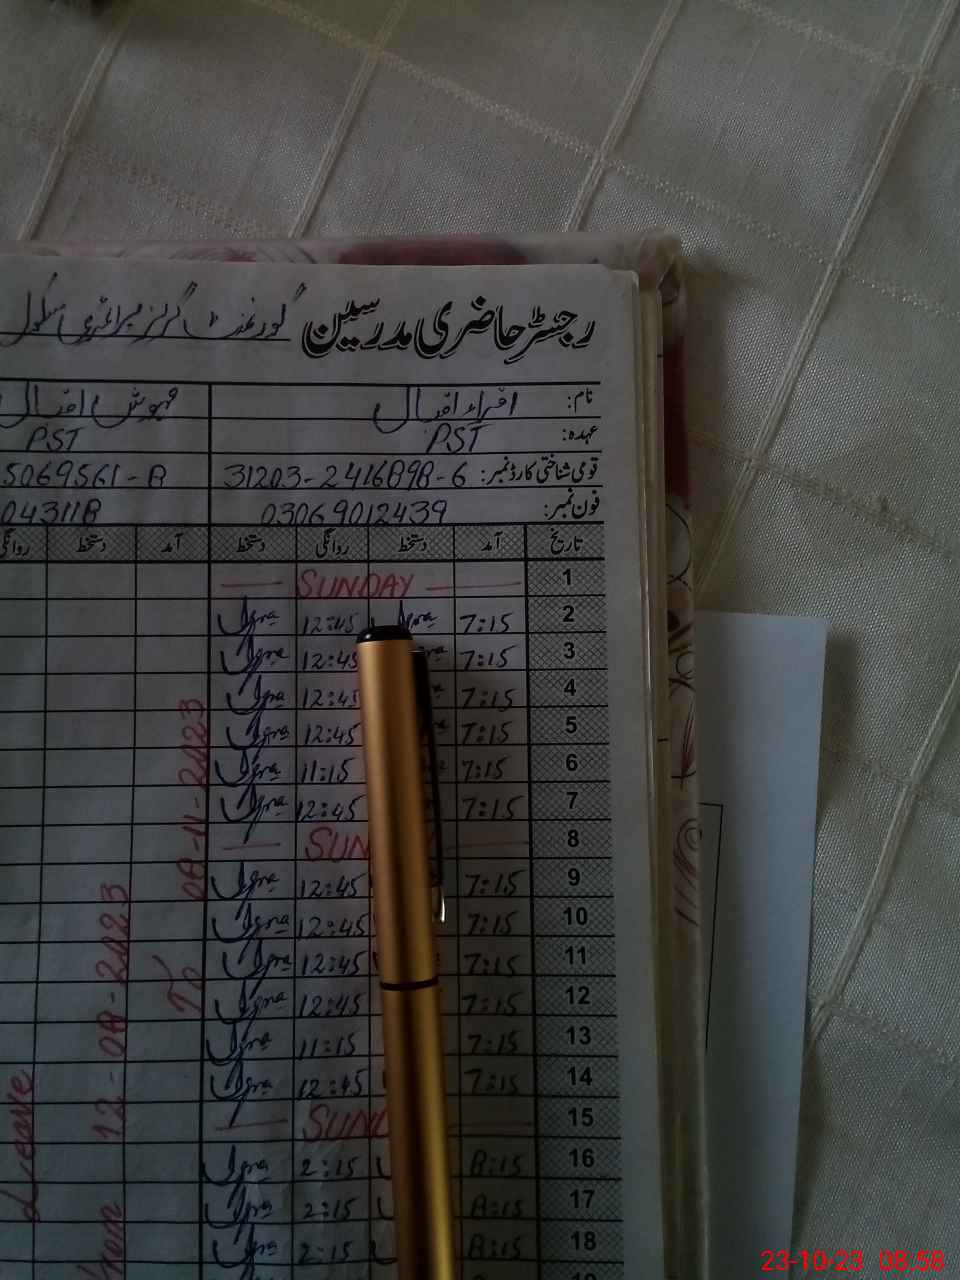 رجسٹر حاضری مدرسین گورنمنٹ گرلز پرائمری سکول
نام: اقراء اقبال مہوش اقبال
عہدہ: PST PST
قومی شناختی کارڈ نمبر: 31203-2416898-6 5069561-8
فون نمبر: 03069012439 043118
تاریخ آمد دستخط روانگی دستخط آمد دستخط روانگی
1 SUNDAY
2 7:15 Iqra 12:45 Iqra
3 7:15 12:45 Iqra
4 7:15 12:45 Iqra
5 7:15 12:45 Iqra
6 7:15 11:15 Iqra
7 7:15 12:45 Iqra
8
9 7:15 12:45 Iqra
10 7:15 12:45 Iqra
11 7:15 12:45 Iqra
12 7:15 12:45 Iqra
13 7:15 11:15 Iqra
14 7:15 12:45 Iqra
15
16 8:15 2:15 Iqra
17 8:15 2:15 Iqra
18 8:15 2:15 Iqra
Leave
From 12-08-2023
To 08-11-2023
23-10-23 08.58